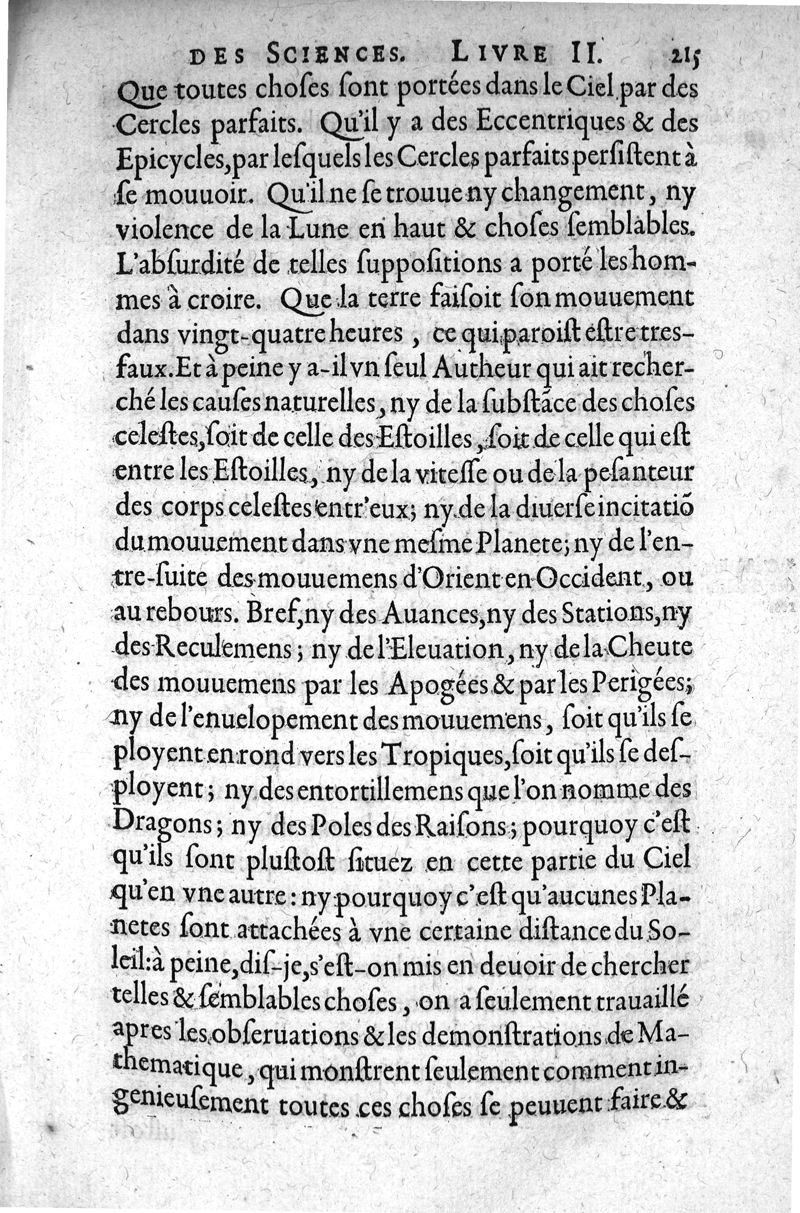 DES SCIENCES. LIVRE II. 215
Que toutes choſes ſont portées dans le Ciel par des
Cercles parfaits. Qu'il y a des Eccentriques & des
Epicycles, par leſquels les Cercles parfaits perſiſtent à
ſe mouuoir. Qu'il ne ſe trouue ny changement, ny
violence de la Lune en haut & choſes ſemblables.
L'abſurdité de telles ſuppoſitions a porté les hom-
mes à croire. Que la terre faiſoit ſon mouuement
dans vingt-quatre heures, ce qui paroiſt eſtre tres-
faux. Et à peine y a-il vn ſeul Autheur qui ait recher-
ché les cauſes naturelles, ny de la ſubſtāce des choſes
celeſtes, ſoit de celle des Eſtoilles, ſoit de celle qui eſt
entre les Eſtoilles, ny de la viteſſe ou de la peſanteur
des corps celeſtes entr'eux; ny de la diuerſe incitatiō
du mouuement dans vne meſme Planete; ny de l'en-
tre-ſuite des mouuemens d'Orient en Occident, ou
au rebours. Bref, ny des Auances, ny des Stations, ny
des Reculemens; ny de l'Eleuation, ny de la Cheute
des mouuemens par les Apogées & par les Perigées;
ny de l'enuelopement des mouuemens, ſoit qu'ils ſe
ployent en rond vers les Tropiques, ſoit qu'ils ſe deſ-
ployent; ny des entortillemens que l'on nomme des
Dragons; ny des Poles des Raiſons; pourquoy c'eſt
qu'ils ſont pluſtoſt ſituez en cette partie du Ciel
qu'en vne autre: ny pourquoy c'eſt qu'aucunes Pla-
netes ſont attachées à vne certaine diſtance du So-
leil: à peine, diſ-je, s'eſt-on mis en deuoir de chercher
telles & ſemblables choſes, on a ſeulement trauaillé
apres les obſeruations & les demonſtrations de Ma-
thematique, qui monſtrent ſeulement comment in-
genieuſement toutes ces choſes ſe peuuent faire &